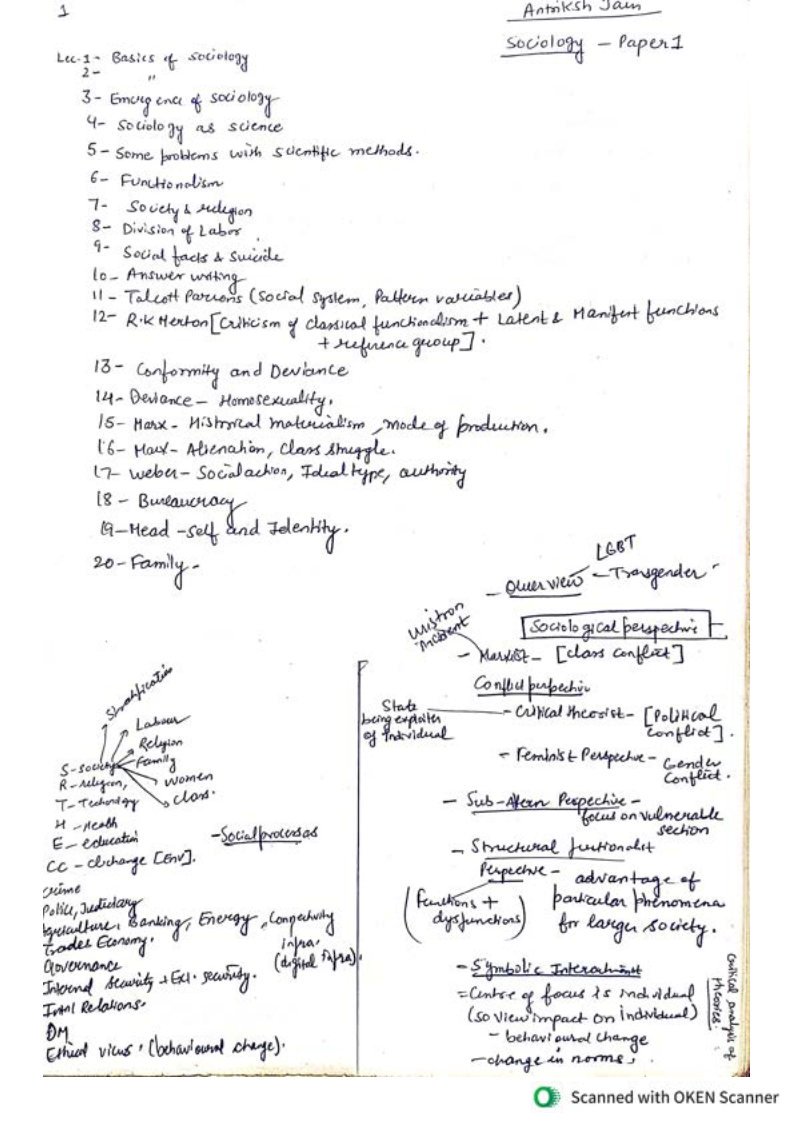 1
Antriksh Jain
Sociology - Paper 1
Lec-1- Basics of sociology
2- "
3- Emergence of sociology
4- Sociology as science
5- Some problems with scientific methods.
6- Functionalism
7- Society & religion
8- Division of Labor
9- Social facts & Suicide
10- Answer writing
11- Talcott Parsons (Social system, Pattern variables)
12- R.K Merton [Criticism of classical functionalism + Latent & Manifest functions
+ reference group].
13- Conformity and Deviance
14- Deviance - Homosexuality.
15- Marx - Historical materialism, mode of production.
16- Marx - Alienation, Class struggle.
17- Weber - Social action, Ideal type, authority
18- Bureaucracy
19- Mead - self and Identity.
20- Family-
LGBT
- Queer view - Transgender
Wistron incident
Sociological perspective
- Marxist - [class conflict]
Conflict perspective
State being exploiter of Individual
- Critical theorist - [Political conflict].
- Feminist Perspective - Gender Conflict.
- Sub-Altern Perspective -
focus on vulnerable section
- Structural functionalist
Perspective - advantage of
particular phenomena
for larger society.
(Functions + dysfunctions)
- Symbolic Interactionist
= Centre of focus is individual
(so view impact on individual)
- behavioural change
- change in norms,
critical analysis of theories.
Stratification
Labour
Religion
Family
women
class.
S - society
R - religion,
T - Technology
H - Health
E - education
CC - cl. change [Env].
- Social processes
crime
Police, Judiciary
Agriculture, Banking, Energy, Connectivity
infra.
(digital infra).
trades Economy.
Governance
Internal Security + Ext. security.
Intnl Relations.
DM
Ethical views. (behavioural change).
Scanned with OKEN Scanner